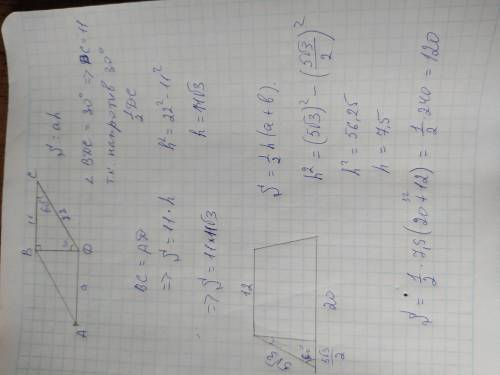 B
11
C
60°
22
A
a
D
S = ah
∠ BDC = 30° => BC = 11
т.к напротив 30°
1/2 DC
BC = AD
h² = 22² - 11²
=> S = 11 · h
h = 11√3
=> S = 11 · 11√3
12
5√3
60°
5√3/2
20
S = 1/2 h (a + b).
h² = (5√3)² - (5√3/2)²
h² = 56,25
h = 7,5
S = 1/2 · 7,5 (20 + 12) = 1/2 · 240 = 120
32